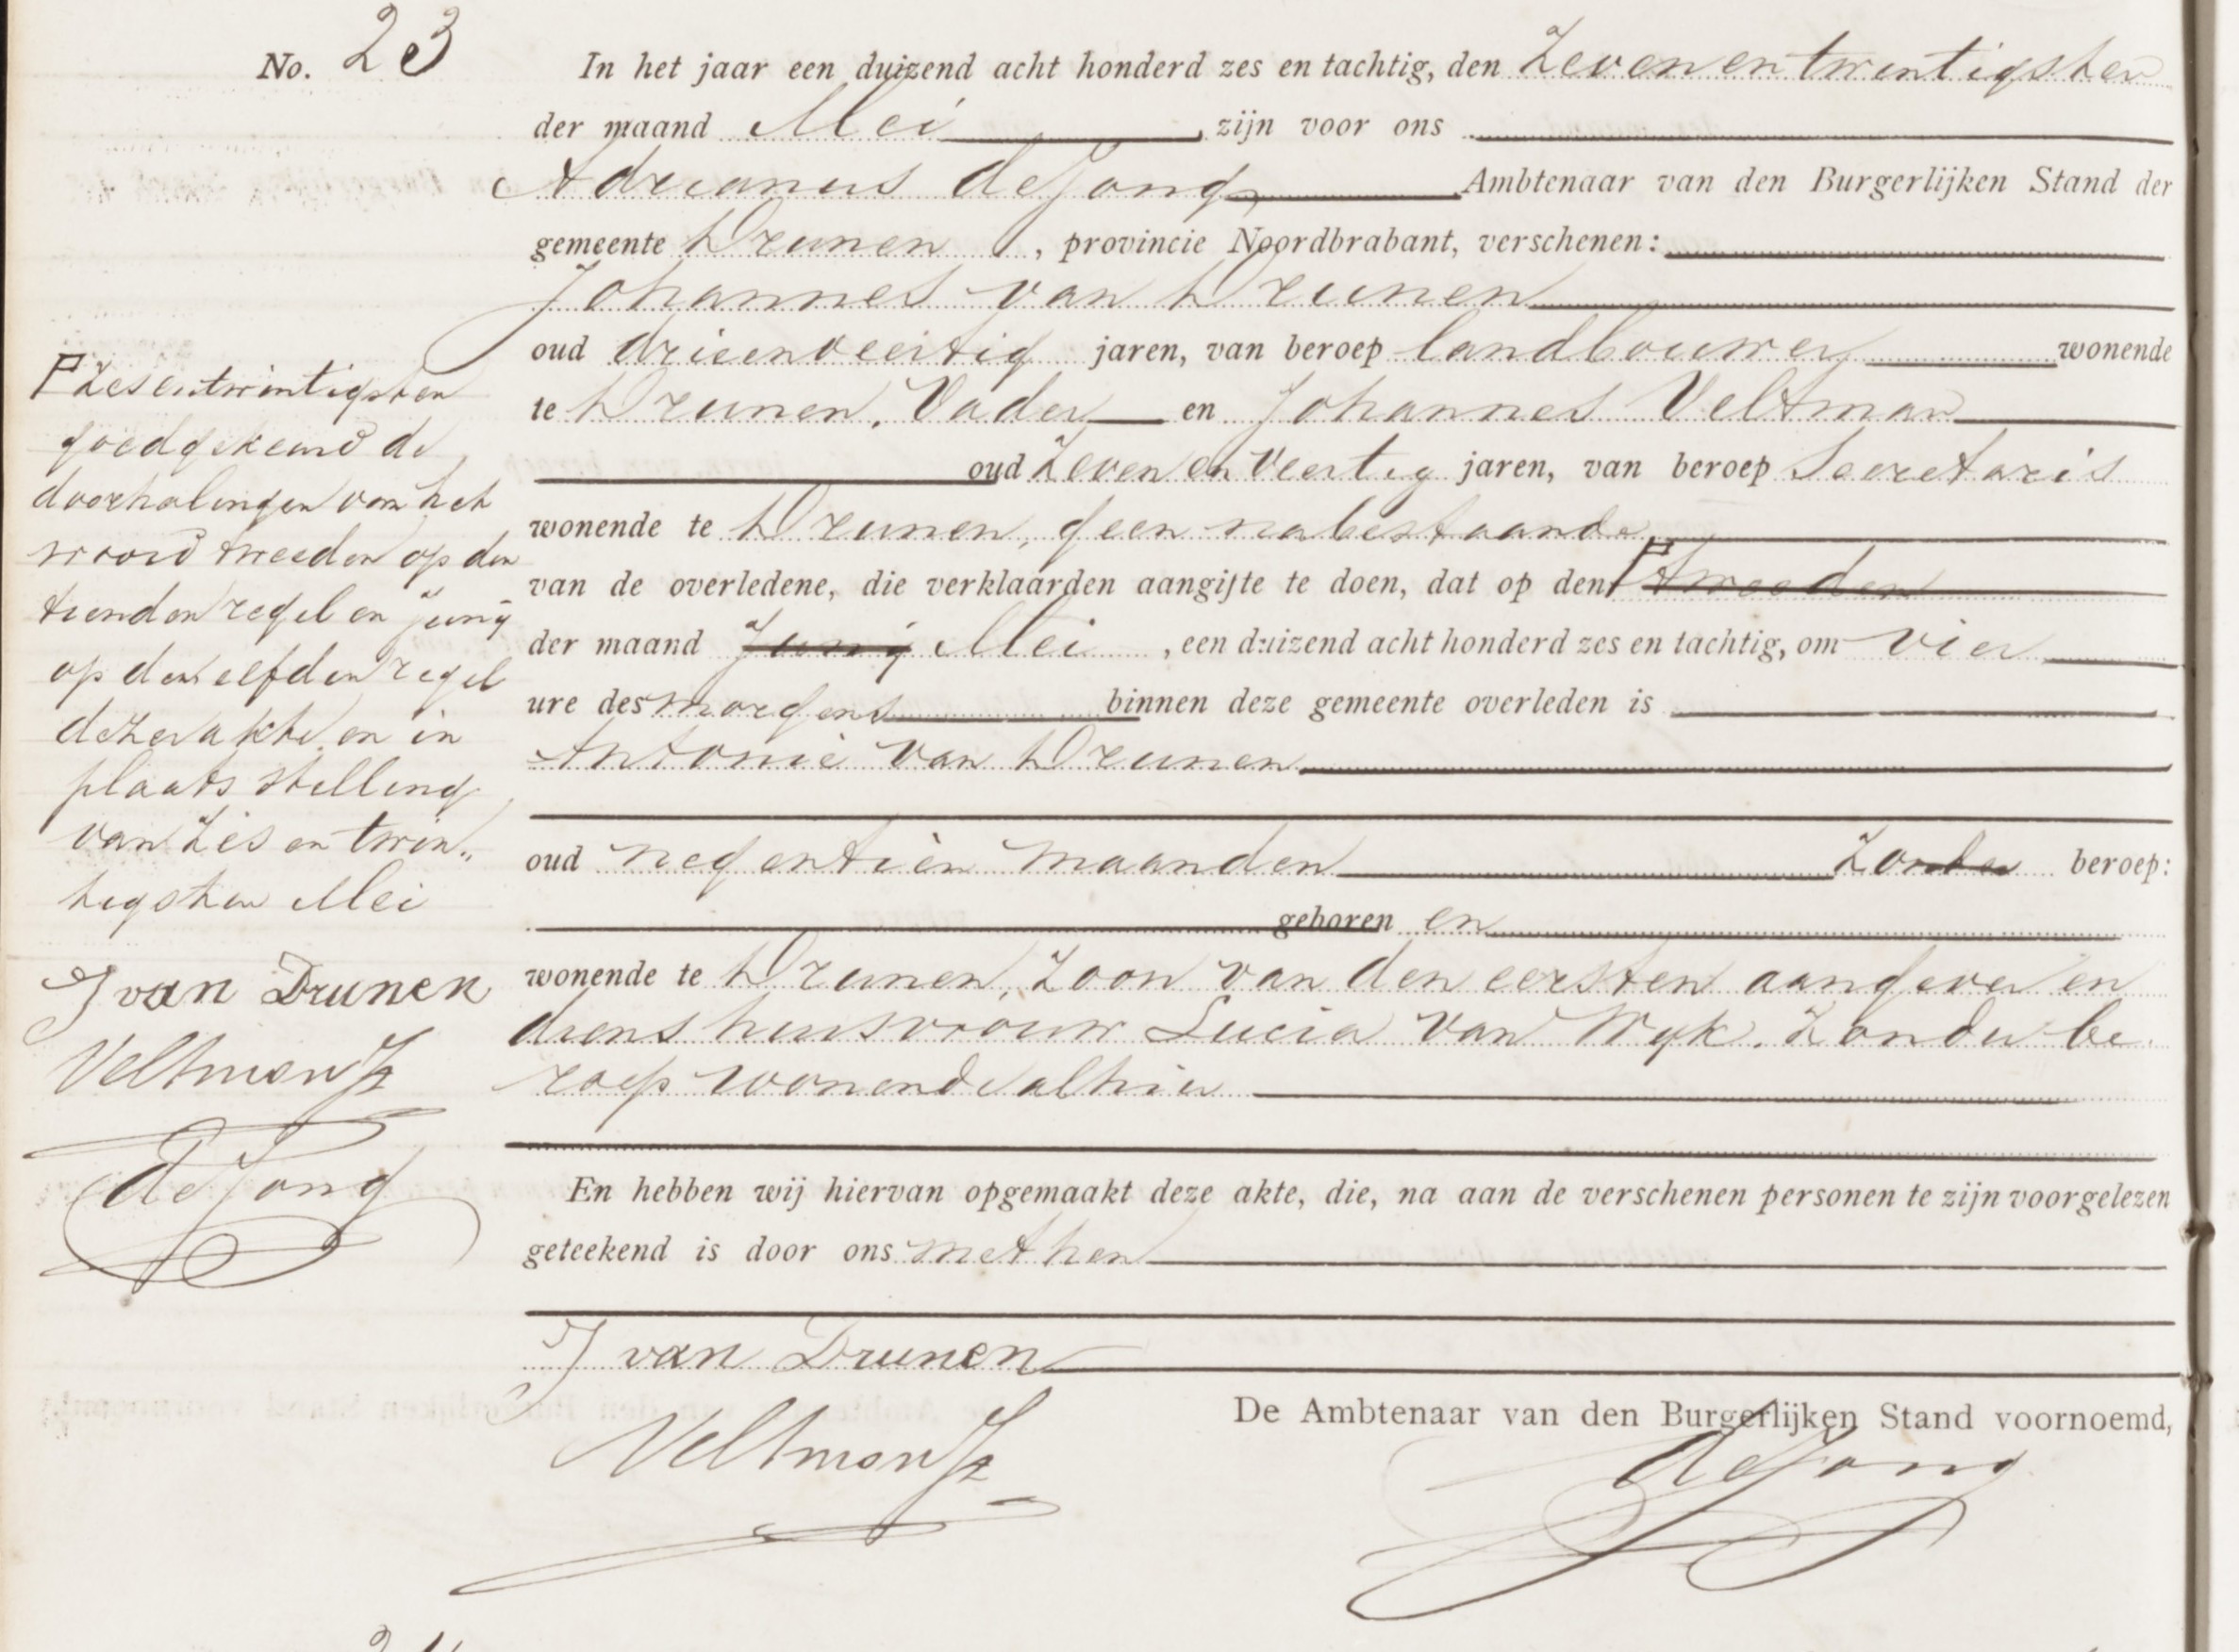 No. 23
In het jaar een duizend acht honderd zes en tachtig, den Zevenentwintigsten
der maand Mei zijn voor ons
Adrianus de Jong Ambtenaar van den Burgerlijken Stand der
gemeente Drunen, provincie Noordbrabant, verschenen:
Johannes van Drunen
oud drieenveertig jaren, van beroep landbouwer wonende
te Drunen, Vader en Johannes Veltman
oud Zeven en Veertig jaren, van beroep Secretaris
wonende te Drunen, geen nabestaande
van de overledene, die verklaarden aangifte te doen, dat op den tweeden
der maand Junij Mei, een duizend acht honderd zes en tachtig, om vier
ure des morgens binnen deze gemeente overleden is
Antonie van Drunen
oud negentien maanden Zonder beroep:
geboren en
wonende te Drunen, Zoon van den eersten aangever en
diens huisvrouw Lucia van Wijk. Zonder be
roep wonende alhier
En hebben wij hiervan opgemaakt deze akte, die, na aan de verschenen personen te zijn voorgelezen
geteekend is door ons met hen
J van Drunen
Veltman Jz
De Ambtenaar van den Burgerlijken Stand voornoemd,
de Jong
Zesentwintigsten
goedgekeurd de
doorhalingen van het
woord tweeden op den
tienden regel en junij
op den elfden regel
dezer akte en in
plaats stelling
van Zes en twin„
tigsten Mei
J van Drunen
Veltman Jz
de Jong